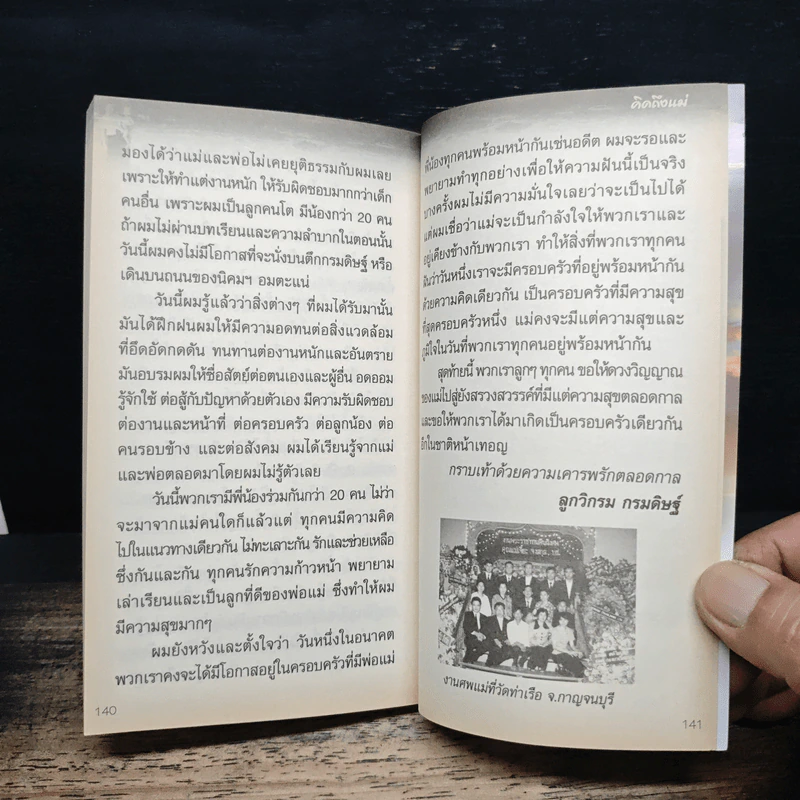 มองได้ว่าแม่และพ่อไม่เคยยุติธรรมกับผมเลย
เพราะให้ทำแต่งานหนัก ให้รับผิดชอบมากกว่าเด็ก
คนอื่น เพราะผมเป็นลูกคนโต มีน้องกว่า 20 คน
ถ้าผมไม่ผ่านบทเรียนและความลำบากในตอนนั้น
วันนี้ผมคงไม่มีโอกาสที่จะนั่งบนตึกกรมดิษฐ์ หรือ
เดินบนถนนของนิคมฯ อมตะแน่
วันนี้ผมรู้แล้วว่าสิ่งต่างๆ ที่ผมได้รับมานั้น
มันได้ฝึกฝนผมให้มีความอดทนต่อสิ่งแวดล้อม
ที่อึดอัดกดดัน ทนทานต่องานหนักและอันตราย
มันอบรมผมให้ซื่อสัตย์ต่อตนเองและผู้อื่น อดออม
รู้จักใช้ ต่อสู้กับปัญหาด้วยตัวเอง มีความรับผิดชอบ
ต่องานและหน้าที่ ต่อครอบครัว ต่อลูกน้อง ต่อ
คนรอบข้าง และต่อสังคม ผมได้เรียนรู้จากแม่
และพ่อตลอดมาโดยผมไม่รู้ตัวเลย
วันนี้พวกเรามีพี่น้องร่วมกันกว่า 20 คน ไม่ว่า
จะมาจากแม่คนใดก็แล้วแต่ ทุกคนมีความคิด
ไปในแนวทางเดียวกัน ไม่ทะเลาะกัน รักและช่วยเหลือ
ซึ่งกันและกัน ทุกคนรักความก้าวหน้า พยายาม
เล่าเรียนและเป็นลูกที่ดีของพ่อแม่ ซึ่งทำให้ผม
มีความสุขมากๆ
ผมยังหวังและตั้งใจว่า วันหนึ่งในอนาคต
พวกเราคงจะได้มีโอกาสอยู่ในครอบครัวที่มีพ่อแม่
140
คิดถึงแม่
พี่น้องทุกคนพร้อมหน้ากันเช่นอดีต ผมจะรอและ
พยายามทำทุกอย่างเพื่อให้ความฝันนี้เป็นจริง
บางครั้งผมไม่มีความมั่นใจเลยว่าจะเป็นไปได้
แต่ผมเชื่อว่าแม่จะเป็นกำลังใจให้พวกเราและ
อยู่เคียงข้างกับพวกเรา ทำให้สิ่งที่พวกเราทุกคน
ฝันว่าวันหนึ่งเราจะมีครอบครัวที่อยู่พร้อมหน้ากัน
ด้วยความคิดเดียวกัน เป็นครอบครัวที่มีความสุข
ที่สุดครอบครัวหนึ่ง แม่คงจะมีแต่ความสุขและ
ภูมิใจในวันที่พวกเราทุกคนอยู่พร้อมหน้ากัน
สุดท้ายนี้ พวกเราลูกๆ ทุกคน ขอให้ดวงวิญญาณ
ของแม่ไปสู่ยังสรวงสวรรค์ที่มีแต่ความสุขตลอดกาล
และขอให้พวกเราได้มาเกิดเป็นครอบครัวเดียวกัน
อีกในชาติหน้าเทอญ
กราบเท้าด้วยความเคารพรักตลอดกาล
ลูกวิกรม กรมดิษฐ์
งานศพแม่ที่วัดท่าเรือ จ.กาญจนบุรี
141